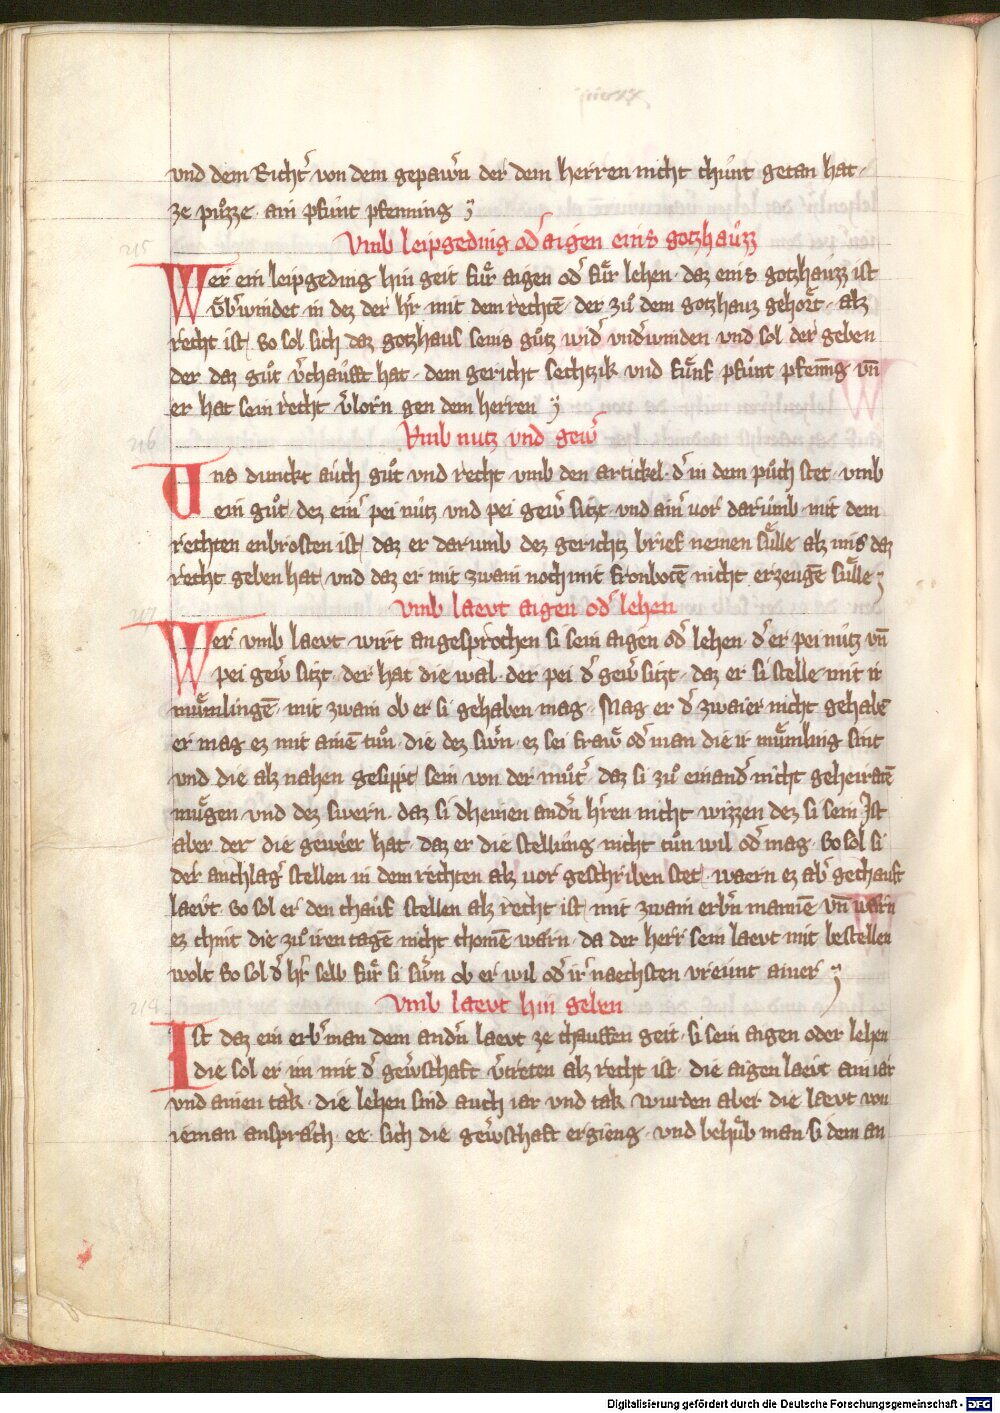 vnd dem Richt͛ von dem gepawͤn der dem herren nicht chunt getan hat ·
ze puͦzze · ain pfunt pfenning
215 Vmb leipgeding od͛ aigen einis gotzhauzz
Wer ein leipgeding hin geit fuͤr aigen od͛ fuͤr lehen · daz einis gotzhauzz ist
vͤb͛windet in dez der h͛r · mit dem rechtē · der zuͦ dem gotzhauz gehort · alz
recht ist / So sol sich daz gotzhaus seins guͦtz wid͛ vnd͛winden vnd sol der geben
der daz guͦt v͛chaufft hat · dem gericht sechtzik vnd fuͤnf pfunt pfennīg vn̄
er hat sein recht v͛lorn gen dem herren
216 Vmb nutz vnd gew͛
Vns dunckt auch guͦt vnd recht vmb den artickel · d͛ in dem puͦch stet · vmb
ein guͦt · dez ein͛ pei nutz vnd pei gew͛ sitzt · vnd ain͛ vor darumb · mit dem
rechten enbrosten ist / daz er darumb dez gerichtz brief nemen suͤlle alz im daz
recht geben hat / vnd daz er mit zwain noch mit fronbotē nicht erzeugē suͤlle
217 Vmb laevt aigen od͛ lehen
Wer vmb laevt · wirt angesprochen si sein aigen od͛ lehen · d͛ er pei nutz vn̄
pei gew͛ sitzt · der hat die wal · der pei d͛ gew͛ sitzt · daz er si stelle · mit ir
muͤmlingē · mit zwain ob er si gehaben mag · Mag er d͛ zwaier nicht gehabē
er mag ez mit ainē tuͦn · die dez sw͛n · ez sei fraw od͛ man die ir muͤmling sint
vnd die alz nahen gesippt sein von der muͦt͛ · daz si zuͦ einand͛ nicht geheiratē
muͤgen · vnd dez swern · daz si dheinen and͛n h͛ren nicht wizzen dez si sein Ist
aber der die gewer hat · daz er die stellung nicht tuͦn wil od͛ mag · So sol si
der anchlag͛ stellen in dem rechten alz vor geschriben stet / waern ez ab͛ gechauft
laevt · So sol er den chauf stellen alz recht ist / mit zwain erb͛n mannē vn̄ warn
ez chint die zuͦ iren tagē nicht chomē warn · da der herr sein laevt mit bestellen
wolt So sol d͛ h͛r selb fuͤr si sw͛n ob er wil od͛ ir naechsten vreunt ainer
218 Vmb laevt hin geben
Ist daz ein erb͛ man dem and͛n laevt ze chauffen geit · si sein aigen oder lehen
die sol er im mit d͛ gew͛schaft v͛treten alz recht ist · die aigen laevt ain iar
vnd ainen tak · die lehen sind auch iar vnd tak wurden aber die laevt von
ieman ansprach · ee sich die gew͛schaft ergieng · vnd behuͤb man si dem an
Digitalisierung gefördert durch die Deutsche Forschungsgemeinschaft - DFG